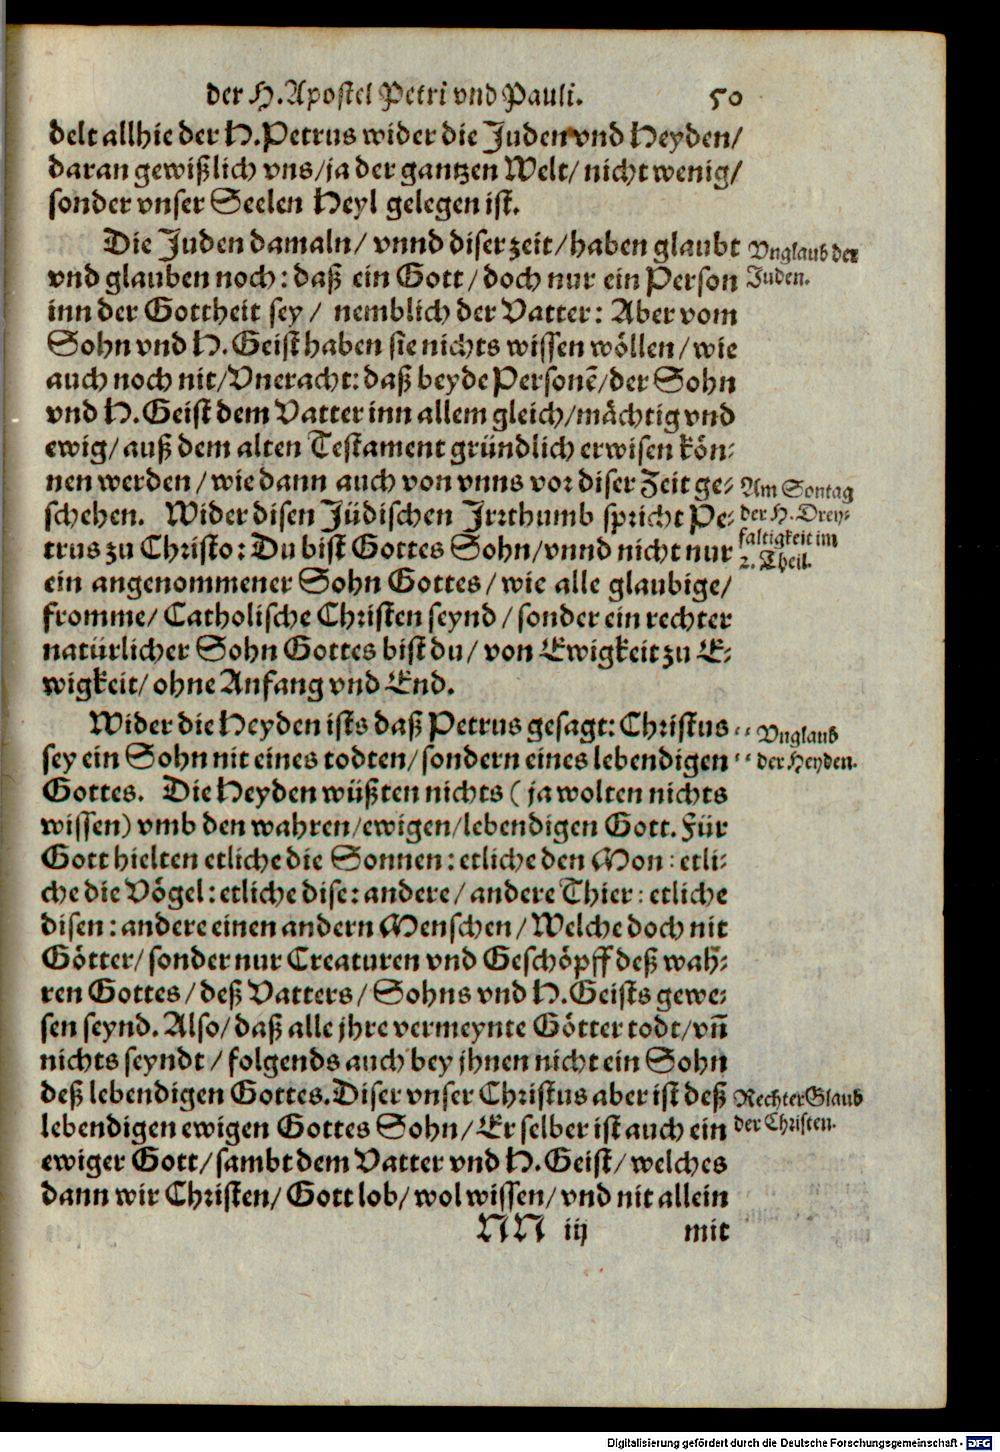 der H. Apostel Petri vnd Pauli. 50
delt allhie der H. Petrus wider die Juden vnd Heyden/
daran gewißlich vns/ja der gantzen Welt/ nicht wenig/
sonder vnser Seelen Heyl gelegen ist.
Die Juden damaln/ vnnd diser zeit/haben glaubt
vnd glauben noch: daß ein Gott/doch nur ein Person
inn der Gottheit sey/ nemblich der Vatter: Aber vom
Sohn vnd H. Geist haben sie nichts wissen wöllen/wie
auch noch nit/Vneracht: daß beyde Personẽ/der Sohn
vnd H. Geist dem Vatter inn allem gleich/mächtig vnd
ewig/auß dem alten Testament gründlich erwisen kön-
nen werden/wie dann auch von vnns vor diser Zeit ge-
schehen. Wider disen Jüdischen Irrthumb spricht Pe-
trus zu Christo: Du bist Gottes Sohn/vnnd nicht nur
ein angenommener Sohn Gottes/wie alle glaubige/
fromme/Catholische Christen seynd/sonder ein rechter
natürlicher Sohn Gottes bist du/ von Ewigkeit zu E-
wigkeit/ohne Anfang vnd End.
Vnglaub der
Juden.
Am Sontag
der H. Drey-
faltigkeit im
2. Theil.
Wider die Heyden ists daß Petrus gesagt: Christus
sey ein Sohn nit eines todten/sondern eines lebendigen
Gottes. Die Heyden wüßten nichts (ja wolten nichts
wissen) vmb den wahren/ewigen/lebendigen Gott. Für
Gott hielten etliche die Sonnen: etliche den Mon: etli-
che die Vögel: etliche dise: andere/andere Thier: etliche
disen: andere einen andern Menschen/Welche doch nit
Götter/sonder nur Creaturen vnd Geschöpff deß wah-
ren Gottes/deß Vatters/Sohns vnd H. Geists gewe-
sen seynd. Also/daß alle jhre vermeynte Götter todt/vñ
nichts seyndt/folgends auch bey jhnen nicht ein Sohn
deß lebendigen Gottes. Diser vnser Christus aber ist deß
lebendigen ewigen Gottes Sohn/Er selber ist auch ein
ewiger Gott/sambt dem Vatter vnd H. Geist/welches
dann wir Christen/Gott lob/wol wissen/vnd nit allein
Vnglaub
der Heyden.
Rechter Glaub
der Christen.
NN iij mit
Digitalisierung gefördert durch die Deutsche Forschungsgemeinschaft - DFG